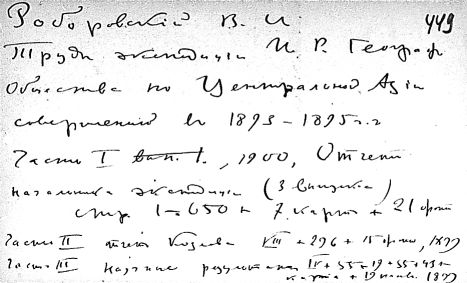 Роборовский В. И. 449
Труды экспедиции И. Р. Географ
Общества по Центральной Азіи
совершенной в 1893-1895 г.г
Часть I вып. I., 1900, Отчет
начальника экспедиции (3 выпуска)
стр 1-650 + 7 карт + 21 фот
Часть II отчет Козлова VIII + 296 + 15 фот, 1899
Часть III научные результаты IV + 55 + 19 + 55 + 43 +
карта + 1899